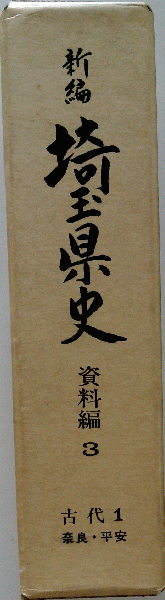 新編
埼玉県史
資料編 3
古代1
奈良・平安